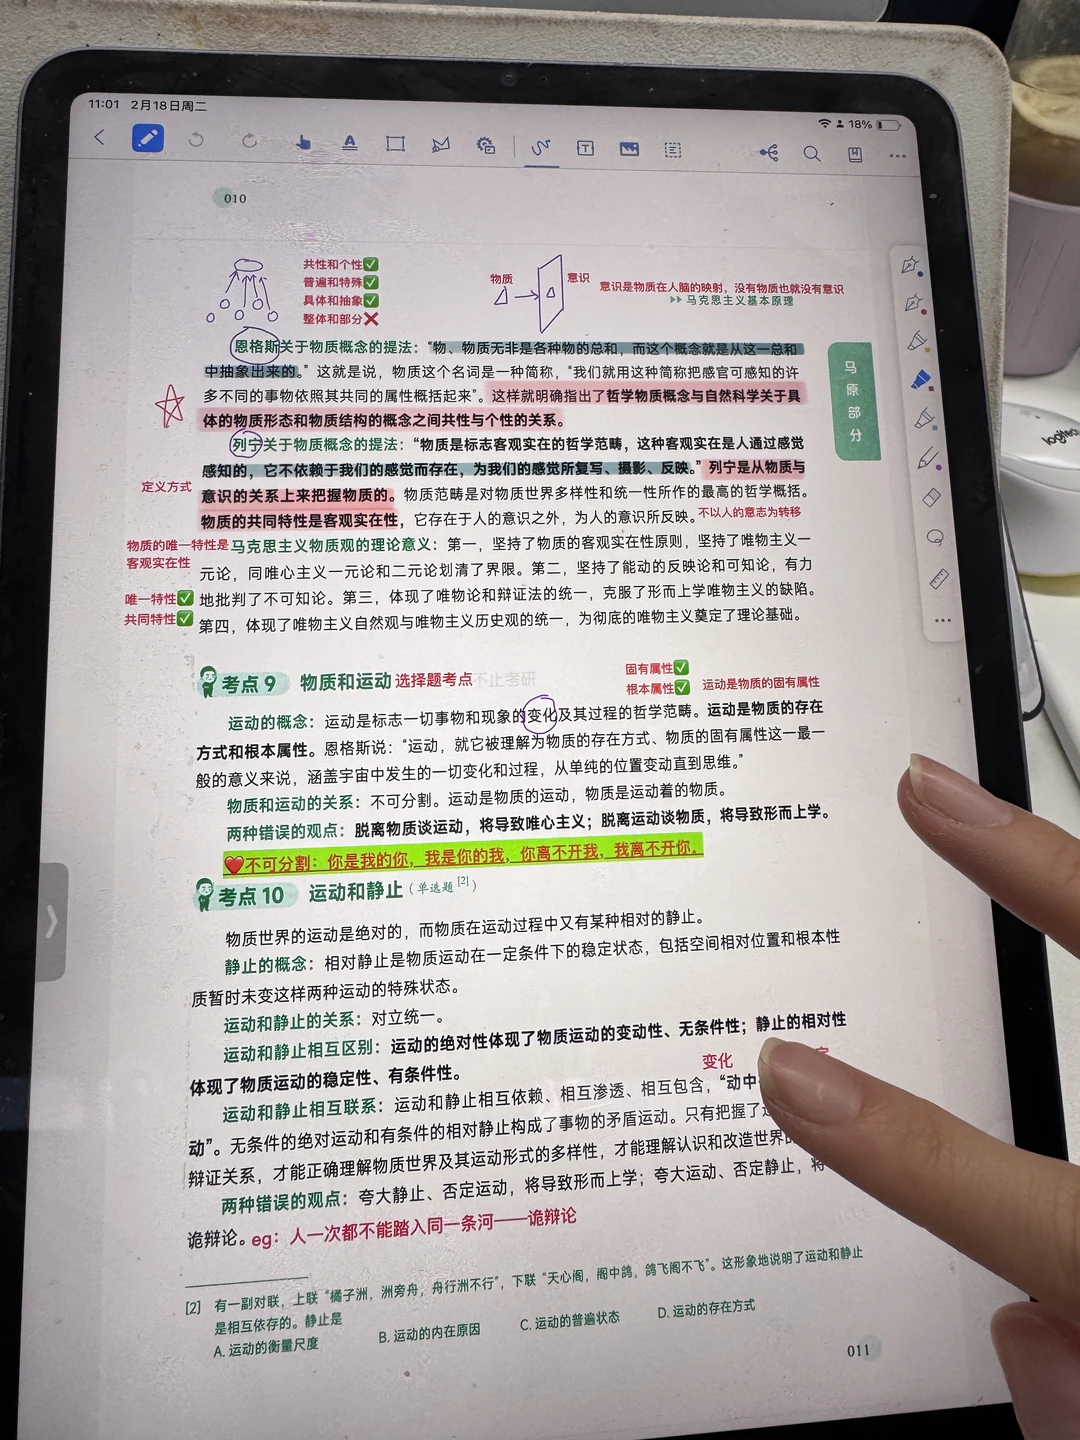 11:01 2月18日周二
18%
010
共性和个性✅
普遍和特殊✅
具体和抽象✅
整体和部分❌
物质
意识
意识是物质在人脑的映射，没有物质也就没有意识
▶▶马克思主义基本原理
恩格斯关于物质概念的提法：“物、物质无非是各种物的总和，而这个概念就是从这一总和
中抽象出来的。”这就是说，物质这个名词是一种简称，“我们就用这种简称把感官可感知的许
多不同的事物依照其共同的属性概括起来”。这样就明确指出了哲学物质概念与自然科学关于具
体的物质形态和物质结构的概念之间共性与个性的关系。
列宁关于物质概念的提法：“物质是标志客观实在的哲学范畴，这种客观实在是人通过感觉
感知的，它不依赖于我们的感觉而存在，为我们的感觉所复写、摄影、反映。”列宁是从物质与
定义方式
意识的关系上来把握物质的。物质范畴是对物质世界多样性和统一性所作的最高的哲学概括。
物质的共同特性是客观实在性，它存在于人的意识之外，为人的意识所反映。不以人的意志为转移
物质的唯一特性是
客观实在性
马克思主义物质观的理论意义：第一，坚持了物质的客观实在性原则，坚持了唯物主义一
元论，同唯心主义一元论和二元论划清了界限。第二，坚持了能动的反映论和可知论，有力
唯一特性✅
地批判了不可知论。第三，体现了唯物论和辩证法的统一，克服了形而上学唯物主义的缺陷。
共同特性✅
第四，体现了唯物主义自然观与唯物主义历史观的统一，为彻底的唯物主义奠定了理论基础。
马原部分
logitech
考点9 物质和运动 选择题考点
不止考研
固有属性✅
根本属性✅ 运动是物质的固有属性
运动的概念：运动是标志一切事物和现象的变化及其过程的哲学范畴。运动是物质的存在
方式和根本属性。恩格斯说：“运动，就它被理解为物质的存在方式、物质的固有属性这一最一
般的意义来说，涵盖宇宙中发生的一切变化和过程，从单纯的位置变动直到思维。”
物质和运动的关系：不可分割。运动是物质的运动，物质是运动着的物质。
两种错误的观点：脱离物质谈运动，将导致唯心主义；脱离运动谈物质，将导致形而上学。
❤️不可分割：你是我的你，我是你的我，你离不开我，我离不开你。
考点10 运动和静止（单选题[2]）
物质世界的运动是绝对的，而物质在运动过程中又有某种相对的静止。
静止的概念：相对静止是物质运动在一定条件下的稳定状态，包括空间相对位置和根本性
质暂时未变这样两种运动的特殊状态。
运动和静止的关系：对立统一。
运动和静止相互区别：运动的绝对性体现了物质运动的变动性、无条件性；静止的相对性
体现了物质运动的稳定性、有条件性。
变化
运动和静止相互联系：运动和静止相互依赖、相互渗透、相互包含，“动中
动”。无条件的绝对运动和有条件的相对静止构成了事物的矛盾运动。只有把握了
辩证关系，才能正确理解物质世界及其运动形式的多样性，才能理解认识和改造世界
两种错误的观点：夸大静止、否定运动，将导致形而上学；夸大运动、否定静止，将
诡辩论。eg：人一次都不能踏入同一条河——诡辩论
[2] 有一副对联，上联“橘子洲，洲旁舟，舟行洲不行”，下联“天心阁，阁中鸽，鸽飞阁不飞”。这形象地说明了运动和静止
是相互依存的。静止是
A. 运动的衡量尺度 B. 运动的内在原因 C. 运动的普遍状态 D. 运动的存在方式
011